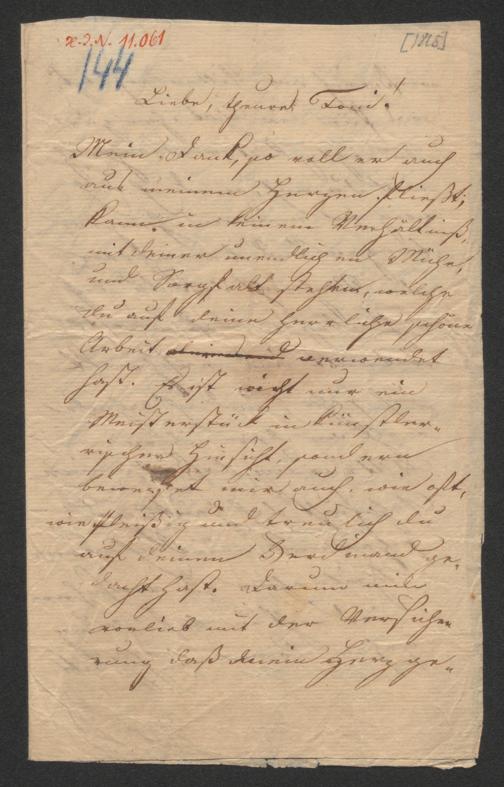 H.I.N. 11.061
[1825]
144
Liebe, theure Toni!
Mein Dank, so voll er auch
aus meinem Herzen fließt,
kann in keinem Verhältniß,
mit deiner unendlichen Mühe,
und Sorgfalt stehen, welche
du auf deine herrliche schöne
Arbeit verwendet
hast. Es ist nicht nur ein
Meisterstück in künstler-
rischer Hinsicht, sondern
beweiset mir auch, wie oft,
wie fleißig und treulich du
auf deinen Ferdinand ge-
dacht hast. Darum nimm
vorlieb mit der Versiche-
rung daß mein Herz ge-